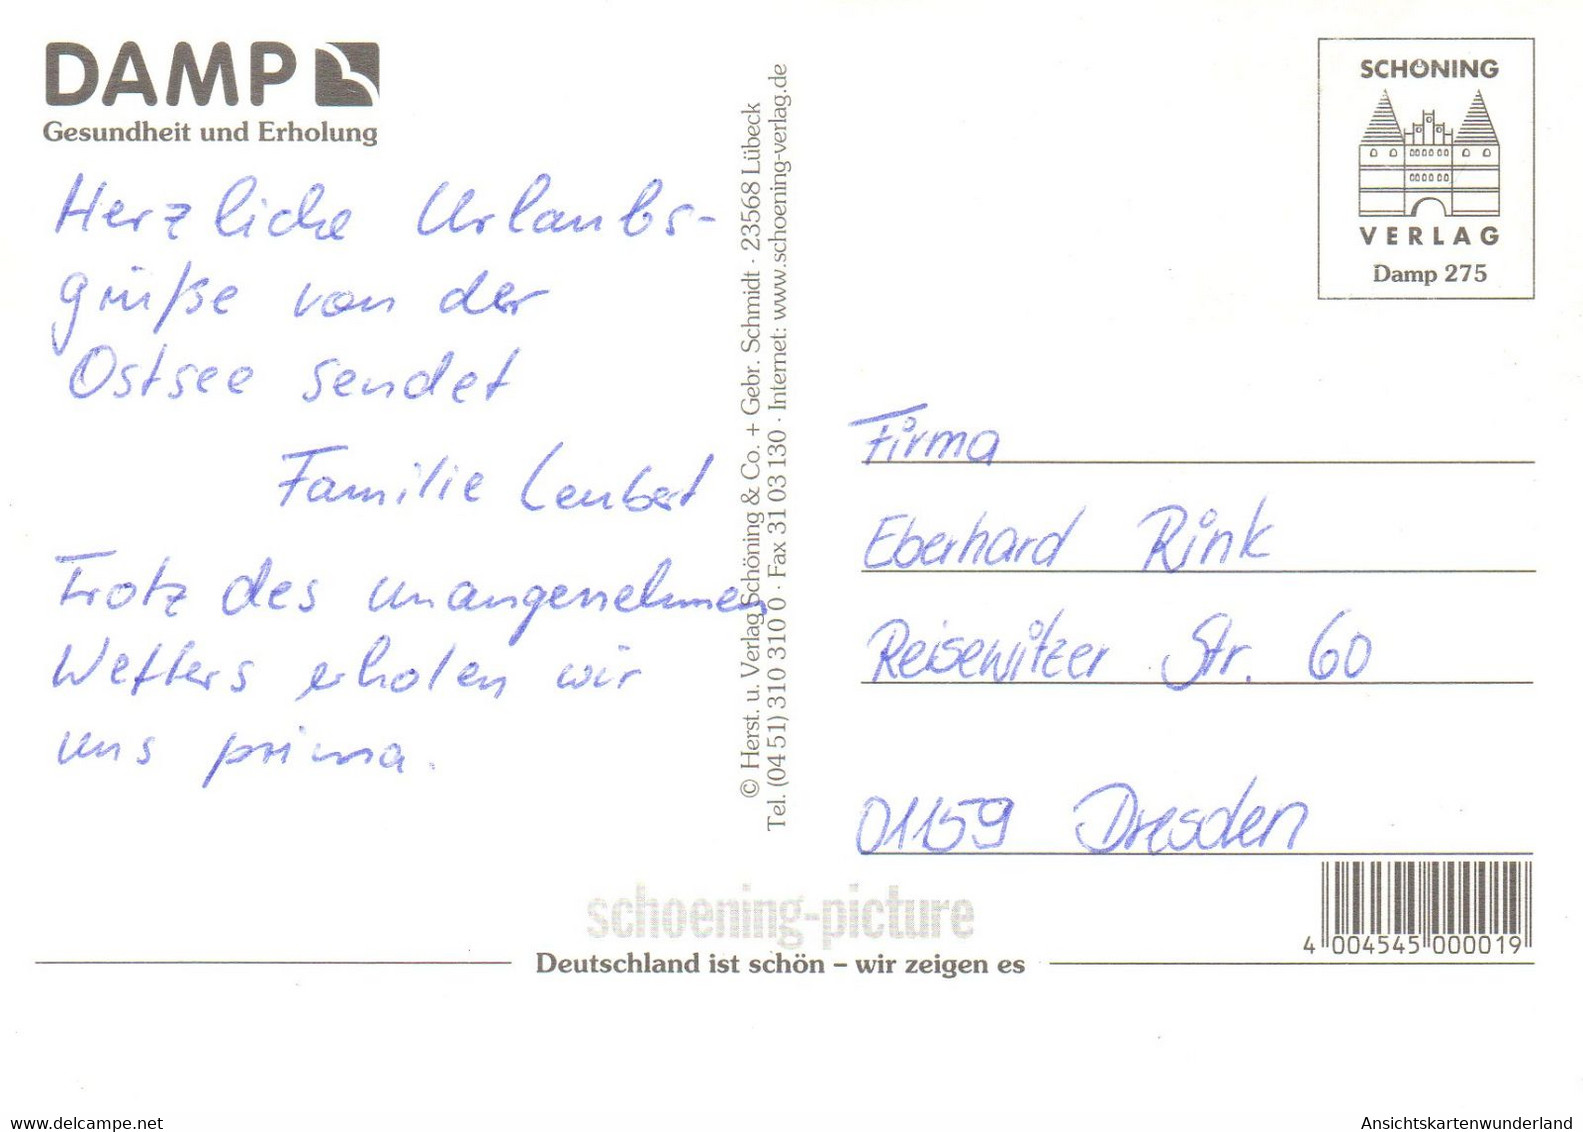 DAMP
Gesundheit und Erholung
Herzliche Urlaubs-
grüße von der
Ostsee sendet
Familie
Trotz des unangenehmen
Wetters erholen wir
uns prima.
© Herst. u. Verlag Schöning & Co. + Gebr. Schmidt · 23568 Lübeck
Tel. (04 51) 310 310 0 · Fax 31 03 130 · Internet: www.schoening-verlag.de
SCHÖNING
VERLAG
Damp 275
Firma
Eberhard Rink
Reisewitzer Str. 60
01159 Dresden
4 004545 000019
schoening-picture
Deutschland ist schön – wir zeigen es
www.delcampe.net
Ansichtskartenwunderland